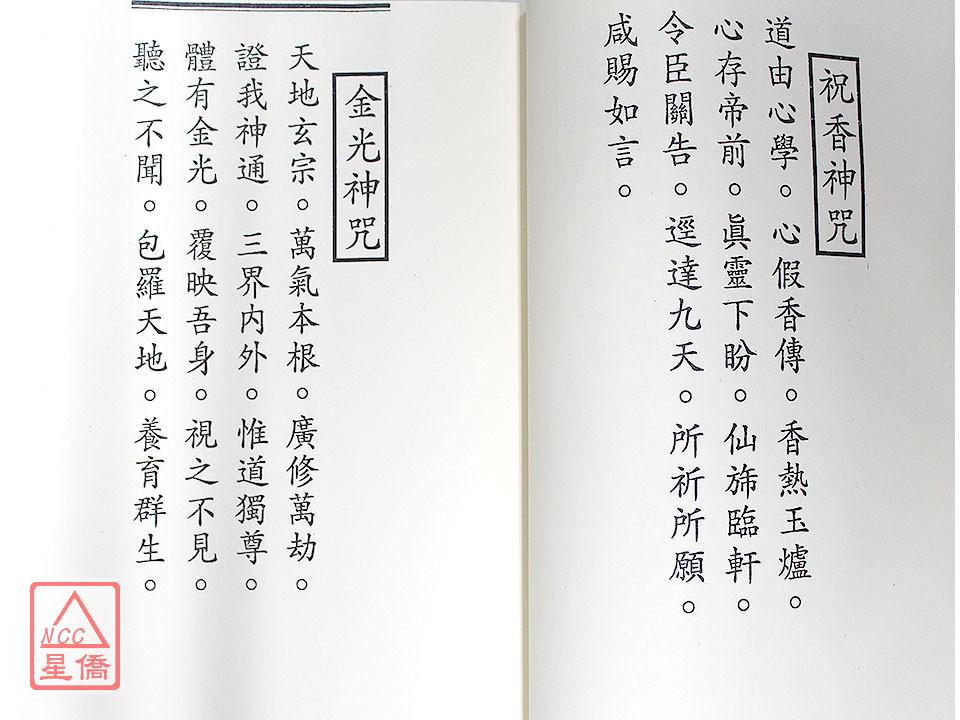 祝香神咒
道由心學。心假香傳。香熱玉爐。
心存帝前。眞靈下盼。仙斾臨軒。
令臣關告。逕達九天。所祈所願。
咸賜如言。
金光神咒
天地玄宗。萬氣本根。廣修萬劫。
證我神通。三界內外。惟道獨尊。
體有金光。覆映吾身。視之不見。
聽之不聞。包羅天地。養育群生。
NCC
星僑